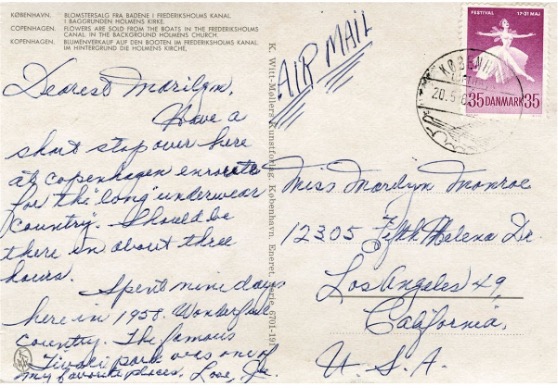 KØBENHAVN. BLOMSTERSALG FRA BADENE I FREDERIKSHOLMS KANAL
I BAGGRUNDEN HOLMENS KIRKE.
COPENHAGEN. FLOWERS ARE SOLD FROM THE BOATS IN THE FREDERIKSHOLMS
CANAL IN THE BACKGROUND HOLMENS CHURCH.
KOPENHAGEN. BLUMENVERKAUF AUF DEN BOOTEN IM FREDERIKSHOLMS KANAL
IM HINTERGRUND DIE HOLMENS KIRCHE.
Dearest Marilyn,
Have a
short stop over here
at Copenhagen enroute
for the "long" underwear
Country". Should be
there in about three
hours.
Spent nine days
here in 1957. Wonderful
Country. The famous
Tivoli park was one of
my favorite places. Love, Joe
K. Witt-Møllers Kunstforlag. København. Eneret. Serie 6701-19
AIR MAIL
FESTIVAL 17-31 MAJ
35 DANMARK 35
KØBENHAVN
20.5
Miss Marilyn Monroe
12305 Fifth Helena Dr.
Los Angeles 49,
California,
U. S. A.